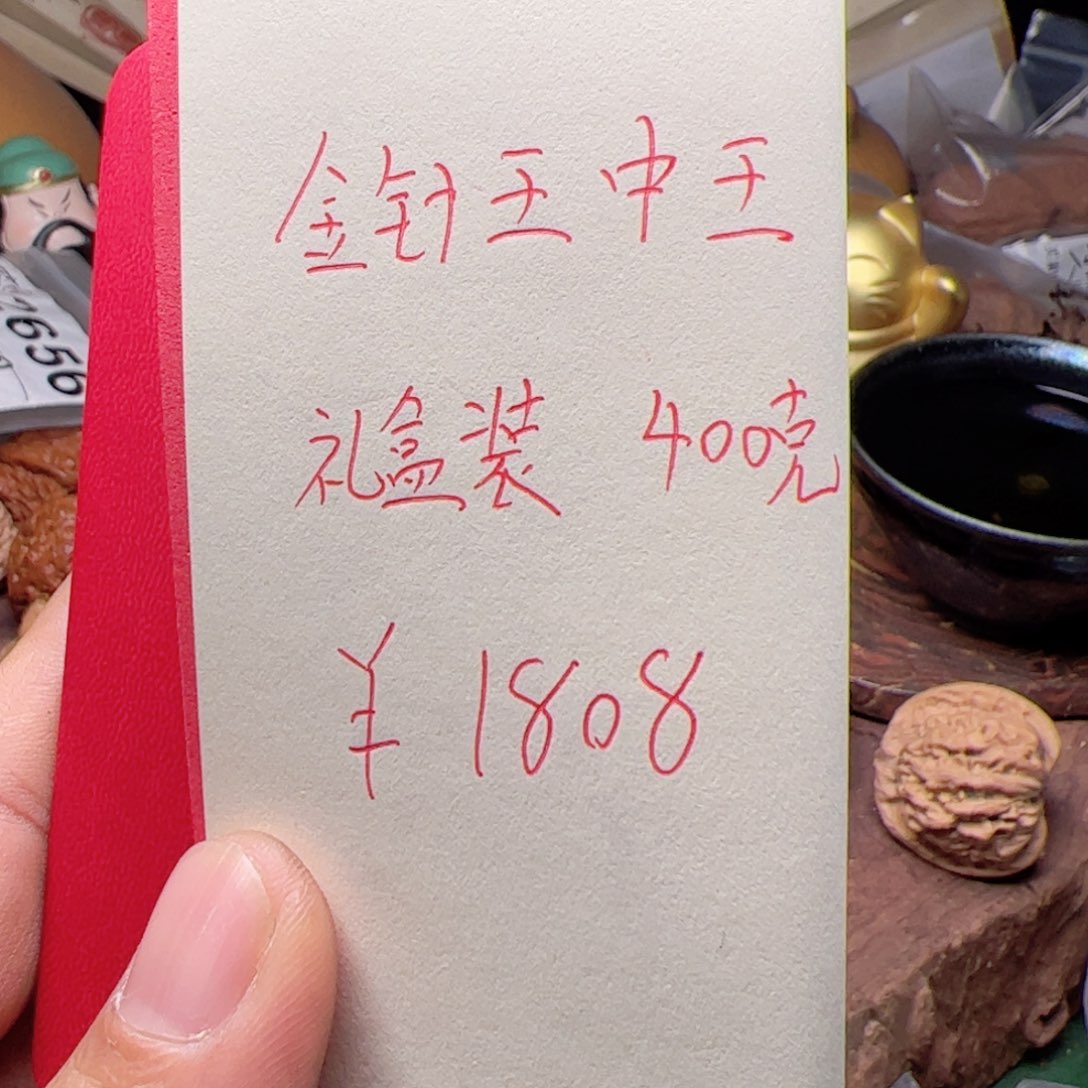 金针王中王
礼盒装 400克
¥ 1808
2656